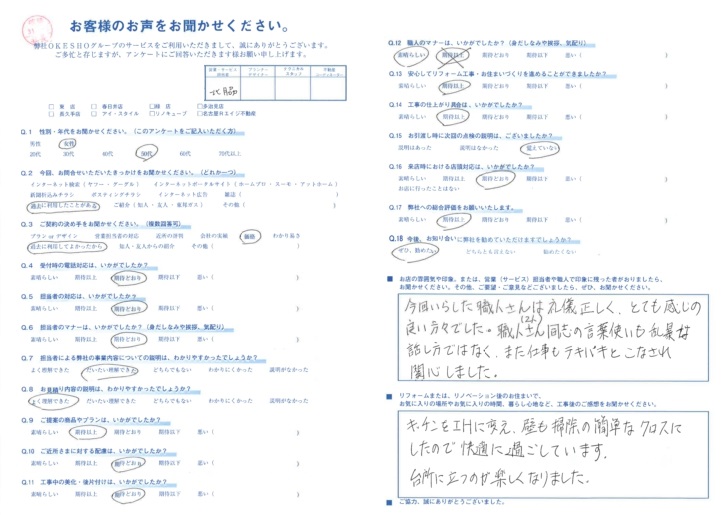 お客様のお声をお聞かせください。
弊社OKESHOグループのサービスをご利用いただきまして、誠にありがとうございます。
ご多忙と存じますが、アンケートにご回答いただきます様お願い申し上げます。
□ 本店 □ 春日井店 □ 緑店 □ 多治見店
□ 長久手店 □ アイ・スタイル □ リノキューブ □ 名古屋エイジ不動産
Q.1 性別・年代をお聞かせください。(このアンケートをご記入いただく方)
男性 女性
20代 30代 40代 50代 60代 70代以上
Q.2 今回、お問合せいただいたきっかけをお聞かせください。(どれか一つ)
インターネット検索(ヤフー・グーグル) インターネットポータルサイト(ホームプロ・スーモ・アットホーム)
新聞折込みチラシ ポスティングチラシ インターネット広告 雑誌( )
過去に利用したことがある ご紹介(知人・友人・東邦ガス) その他( )
Q.3 ご契約の決め手をお聞かせください。(複数回答可)
プラン or デザイン 営業担当者の対応 近所の評判 会社の実績 価格 わかり易さ
過去に利用してよかったから 知人・友人からの紹介 その他( )
Q.4 受付時の電話対応は、いかがでしたか?
素晴らしい 期待以上 期待どおり 期待以下 悪い( )
Q.5 担当者の対応は、いかがでしたか?
素晴らしい 期待以上 期待どおり 期待以下 悪い( )
Q.6 担当者のマナーは、いかがでしたか?(身だしなみや挨拶、気配り)
素晴らしい 期待以上 期待どおり 期待以下 悪い( )
Q.7 担当者による弊社の事業内容についての説明は、わかりやすかったでしょうか?
よく理解できた だいたい理解できた どちらでもない わかりにくかった 説明がなかった
Q.8 お見積り内容の説明は、わかりやすかったでしょうか?
よく理解できた だいたい理解できた どちらでもない わかりにくかった 説明がなかった
Q.9 ご提案の商品やプランは、いかがでしたか?
素晴らしい 期待以上 期待どおり 期待以下 悪い( )
Q.10 ご近所さまに対する配慮は、いかがでしたか?
素晴らしい 期待以上 期待どおり 期待以下 悪い( )
Q.11 工事中の美化・後片付けは、いかがでしたか?
素晴らしい 期待以上 期待どおり 期待以下 悪い( )
Q.12 職人のマナーは、いかがでしたか?(身だしなみや挨拶、気配り)
素晴らしい 期待以上 期待どおり 期待以下 悪い( )
Q.13 安心してリフォーム工事・お住まいづくりを進めることができましたか?
素晴らしい 期待以上 期待どおり 期待以下 悪い( )
Q.14 工事の仕上がり具合は、いかがでしたか?
素晴らしい 期待以上 期待どおり 期待以下 悪い( )
Q.15 お引渡し時に次回の点検の説明は、ございましたか?
説明はあった 説明はなかった 覚えていない
Q.16 来店時における店頭対応は、いかがでしたか?
素晴らしい 期待以上 期待どおり 期待以下 悪い( )
お店に行ったことはない
Q.17 弊社への総合評価をお願いいたします。
素晴らしい 期待以上 期待どおり 期待以下 悪い( )
Q.18 今後、お知り合いに弊社を勧めていただけますでしょうか?
ぜひ、勧めたい どちらともいえない 勧めたくない
■ お店の雰囲気や印象、または、営業(サービス)担当者や職人で印象に残った者がおりましたら、
お聞かせください。その他、ご要望・ご意見などございましたら、ぜひ、お聞かせください。
今回いらした職人さんは礼儀正しく、とても感じの
良い方々でした。職人さん(2人)同志の言葉使いも乱暴な
話し方ではなく、また仕事もテキパキとこなされ
関心しました。
■ リフォームまたは、リノベーション後のお住まいで、
お気に入りの場所やお気に入りの時間、暮らし心地など、工事後のご感想をお聞かせください。
キッチンをIHに変え、壁も掃除の簡単なクロスに
したので快適に過ごしています。
台所に立つのが楽しくなりました。
■ ご協力、誠にありがとうございました。